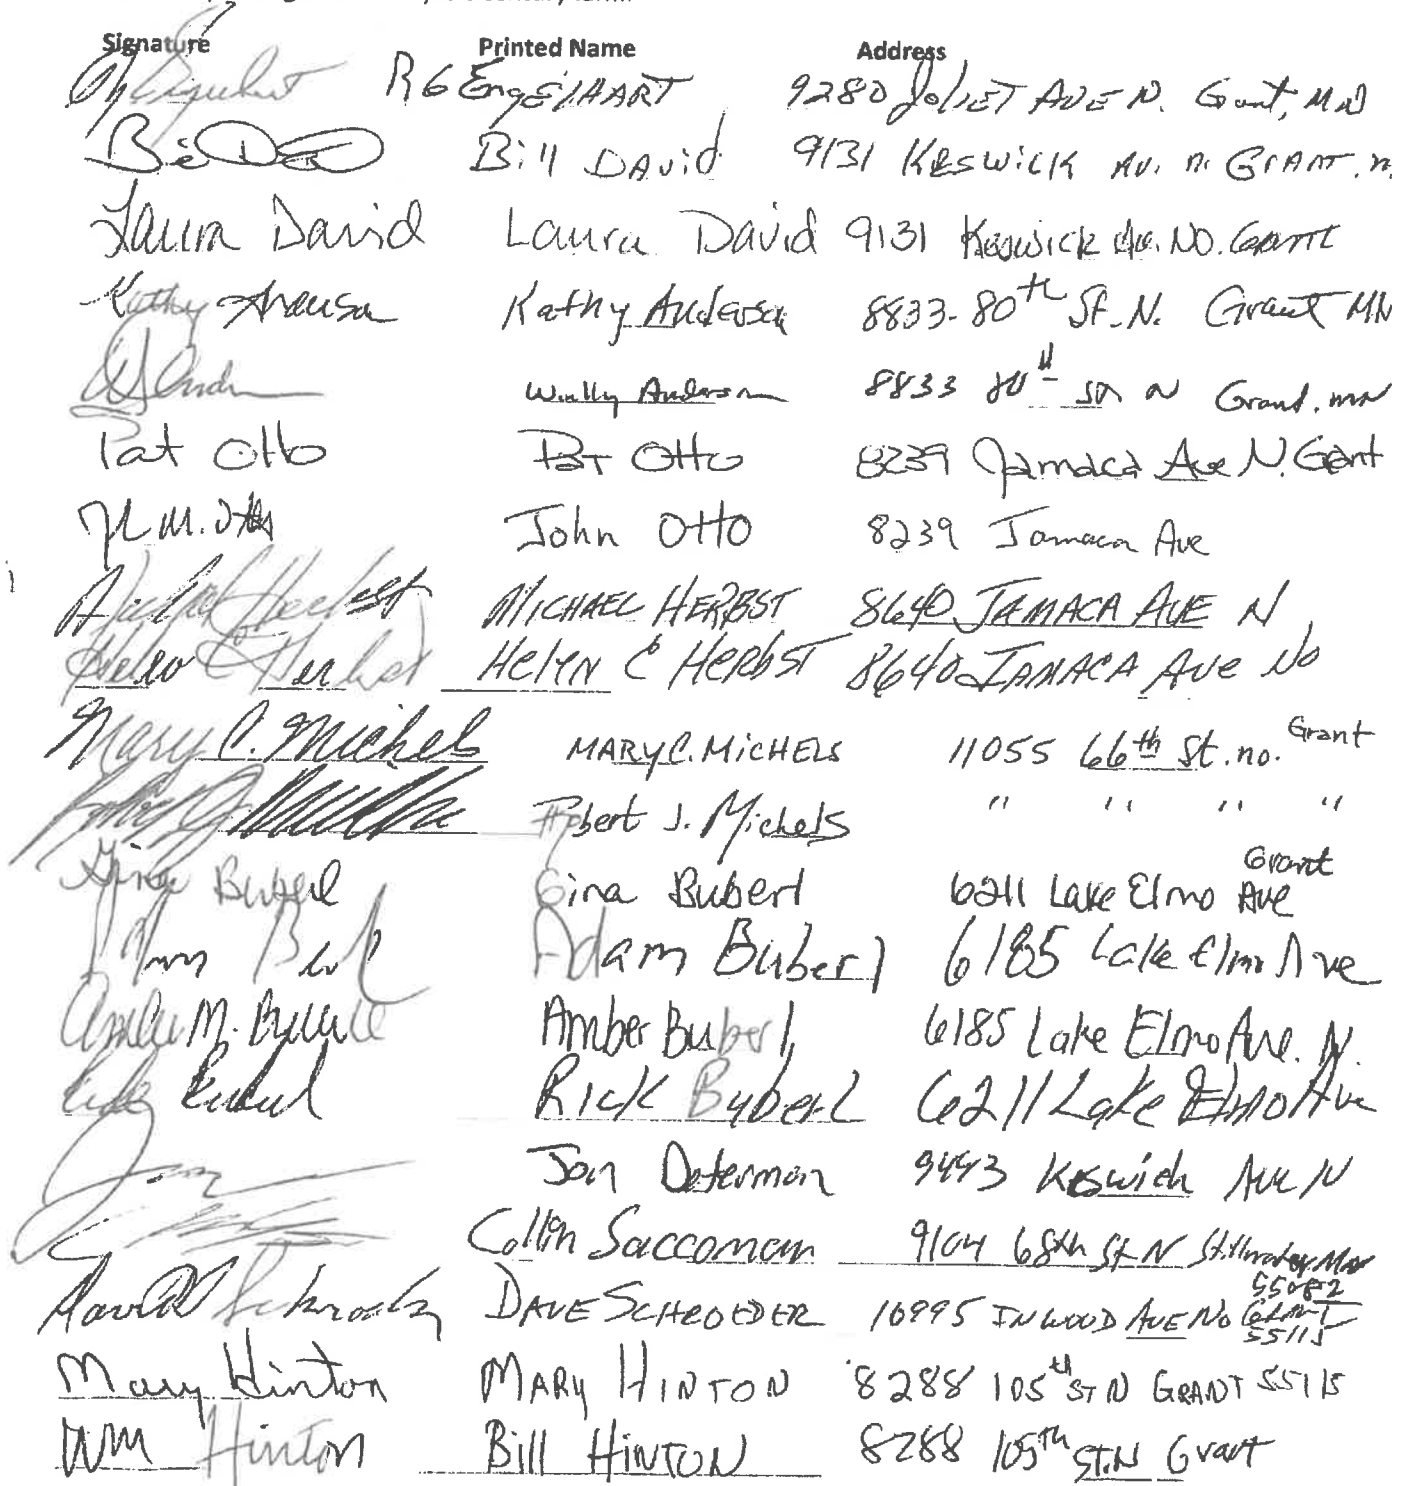 Signature Printed Name Address
RG EngElHART 9280 JOLIET AVE N. Grant, MN
Bill DAVID 9131 KESWICK AV. n. GRANT.
Laura David Laura David 9131 Keswick Av. NO. Grant
Kathy Anderson Kathy Anderson 8833-80th St. N. Grant MN
Wally Anderson 8833 80th N Grant. MN
Pat Otto Pat Otto 8239 Jamaca Ave N. Grant
John Otto 8239 Jamaca Ave
Michael Herbst MICHAEL HERBST 8640 JAMACA AVE N
Helen C Herbst HELEN C HERBST 8640 JAMACA AVE No
Mary C. Michels MARY C. MICHELS 11055 66th St. no. Grant
Robert J. Michels " " " "
Gina Buberl Gina Buberl 6211 Lake Elmo Ave Grant
Adam Buberl 6185 Lake Elmo Ave
Amber M. Buberl Amber Buberl 6185 Lake Elmo Ave. N.
Rick Buberl Rick Buberl 6211 Lake Elmo Ave
Jon Determan 9493 Keswick Ave N
Collin Saccoman 9104 68th St N Stillwater MN 55082
David Schroeder DAVE SCHROEDER 10995 INWOOD AVE No GRANT 55115
Mary Hinton MARY HINTON 8288 105th ST N GRANT 55115
WM Hinton Bill HINTON 8288 105th ST. N Grant